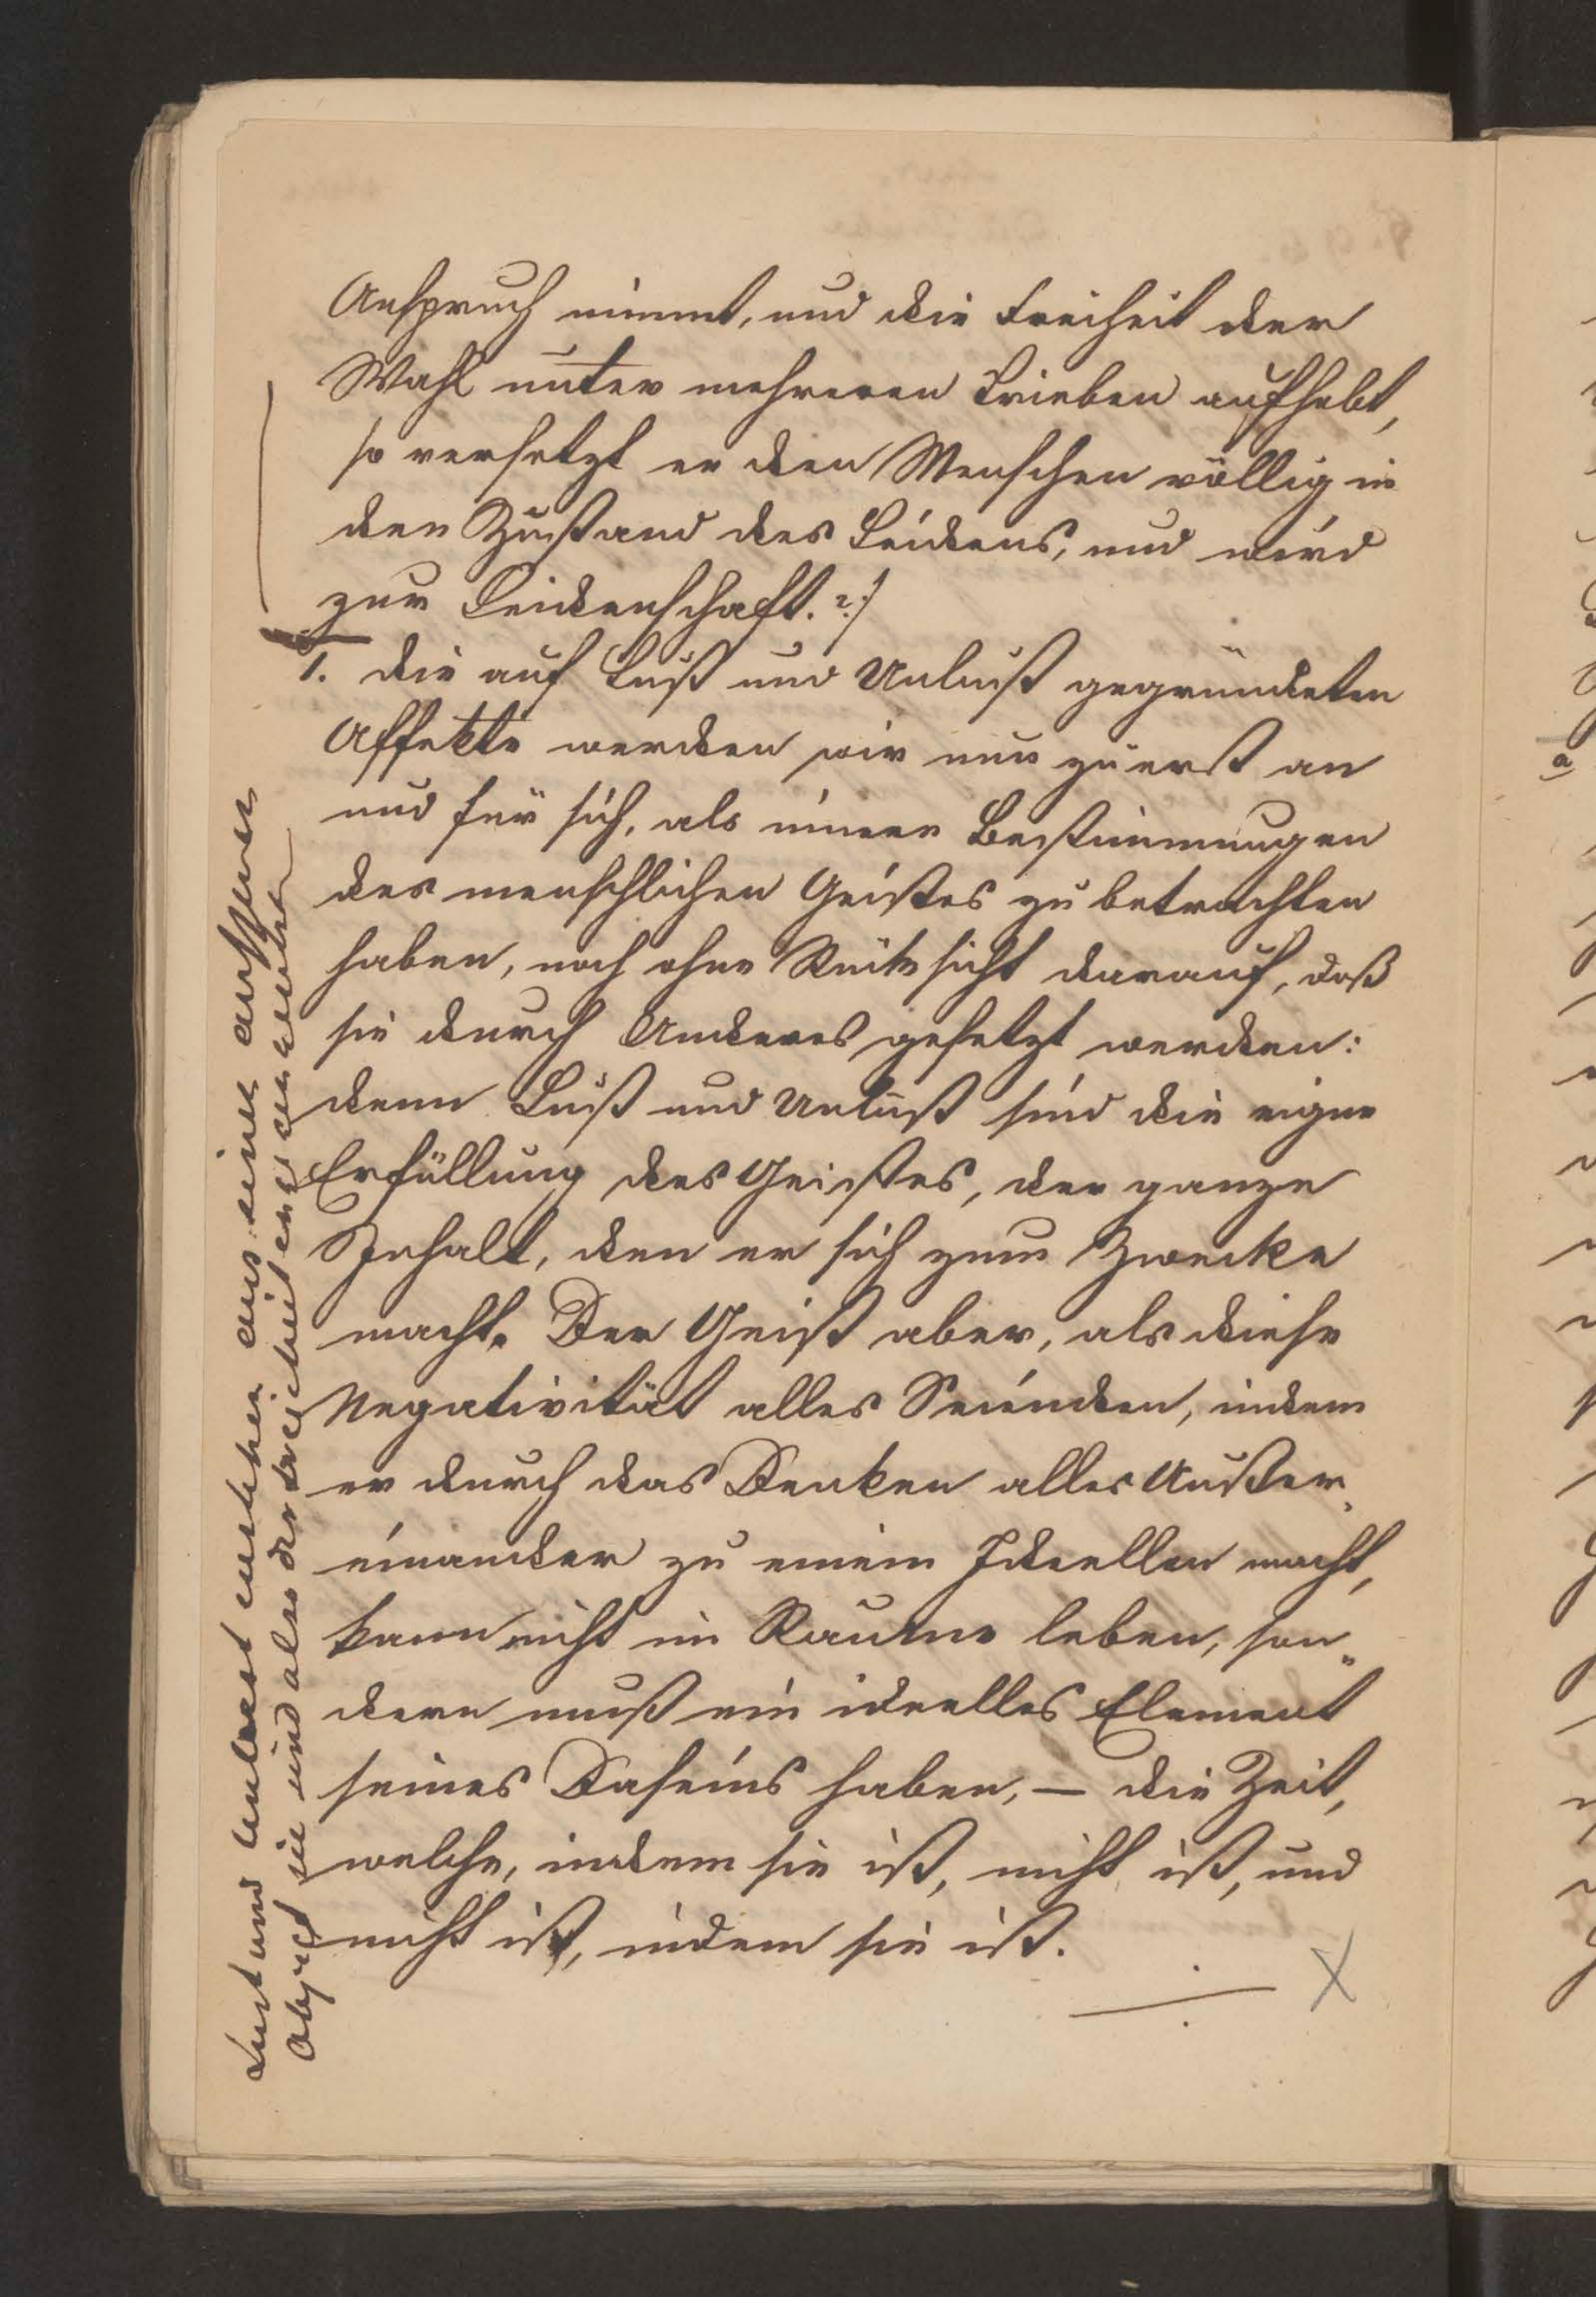 Anspruch nimmt, und die Freiheit der
Wahl unter mehreren Trieben aufhebt,
so versetzt er den Menschen völlig in
den Zustand des Leidens, und wird
zur Leidenschaft. ?:/
1. Die auf Lust und Unlust gegründeten
Affekte werden wir nun zuerst an
und für sich, als innere Bestimmungen
des menschlichen Geistes zu betrachten
haben, noch ohne Rücksicht darauf, daß
sie durch Anderes gesetzt werden:
denn Lust und Unlust sind die eigne
Erfüllung des Geistes, der ganze
Inhalt, den er sich zum Zwecke
macht. Der Geist aber, als diese
Negativität alles Seienden, indem
er durch das Denken alles Außer„
einander zu einem Ideellen macht,
kann nicht im Raume leben, son„
dern muß ein ideelles Element
seines Daseins haben, — die Zeit,
welche, indem sie ist, nicht ist, und
nicht ist, indem sie ist.
X
Lust und Unlust aus einem äusseren
Object sie sind also der